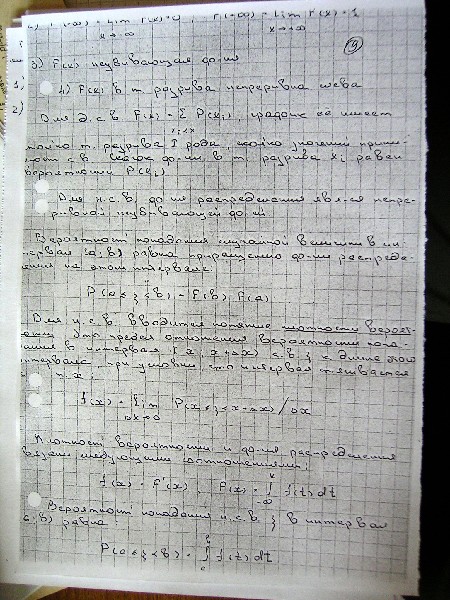 2) F(-∞) = lim F(x) = 0, F(+∞) = lim F(x) = 1
x→-∞ x→+∞
9
3) F(x) неубывающая ф-ия
1)
4) F(x) в т. разрыва непрерывна слева
2)
Для д.с.в. F(x) = Σ P(xi), график её имеет
xi<x
только т. разрыва I рода, сколько значений прини-
мает с.в. Скачок ф-ии в т. разрыва xi равен
вероятности P(xi)
Для н.с.в. ф-ия распределения явл-ся непре-
рывной неубывающей ф-ией
Вероятность попадания случайной величины в ин-
тервал (a; b) равна приращению ф-ии распреде-
ления на этом интервале:
P(a ≤ ξ < b) = F(b) - F(a)
Для н.с.в. вводится понятие плотности вероят-
ности. Это предел отношения вероятности попа-
дания в интервал [x; x+Δx) с.в. ξ к длине этого
интервала, при условии что интервал стягивается
к т. x:
f(x) = lim P(x ≤ ξ < x+Δx)/Δx
Δx→0
Плотность вероятности и ф-ия распределения
связаны следующими соотношениями:
f(x) = F'(x), F(x) = ∫ f(t)dt
Вероятность попадания н.с.в. ξ в интервал
(a; b) равна
P(a ≤ ξ < b) = ∫ f(t)dt